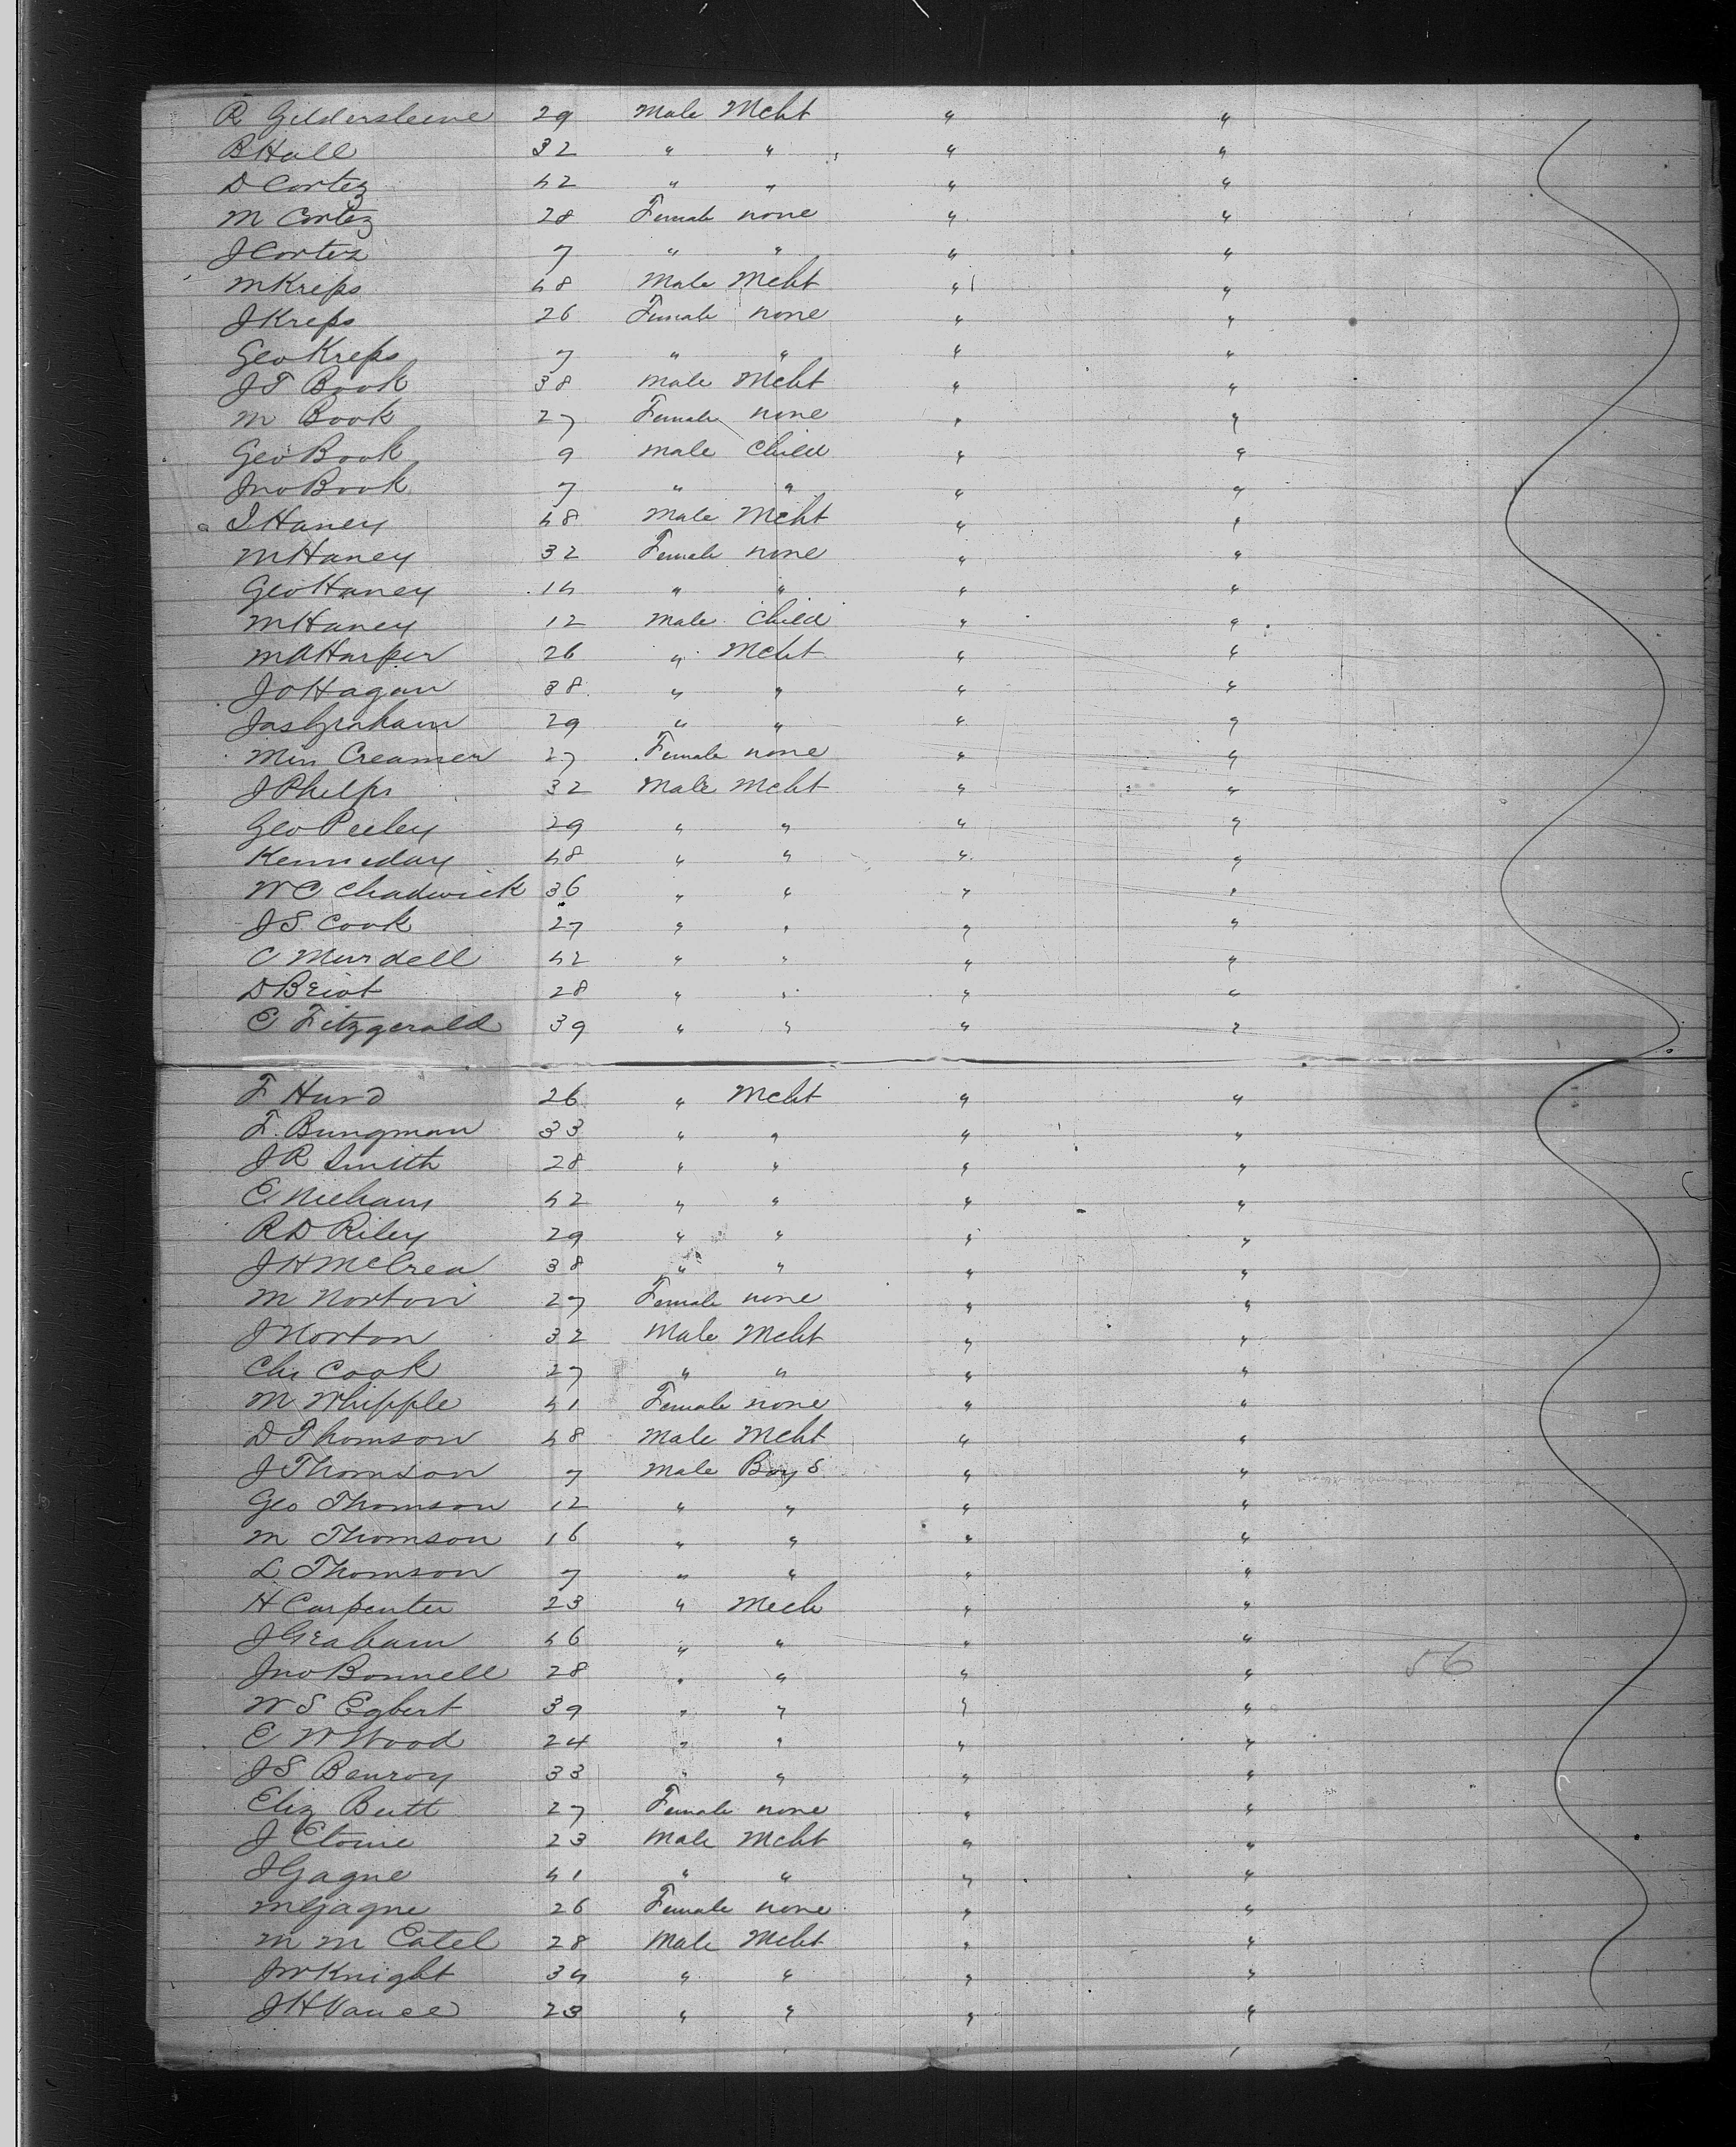 R Gildersleeve 29 Male Mcht " "
B Hall 32 " " " "
D Cortez 42 " " " "
M Cortez 28 Female none " "
J Cortez 7 " " " "
M Kreps 48 Male Mcht " "
J Kreps 26 Female none " "
Geo Kreps 7 " " " "
J T Book 38 Male Mcht " "
M Book 27 Female none " "
Geo Book 9 Male Child " "
Jno Book 7 " " " "
S Haney 48 Male Mcht " "
M Haney 32 Female none " "
Geo Haney 14 " " " "
M Haney 12 Male Child " "
M A Harper 26 " Mcht " "
J O Hagan 38 " " " "
Jas Graham 29 " " " "
Miss Creamer 27 Female none " "
J Phelps 32 Male Mcht " "
Geo Peeley 29 " " " "
Kenneday 48 " " " "
W C Chadwick 36 " " " "
J S Cook 27 " " " "
C Murdell 42 " " " "
D Briot 28 " " " "
E Fitzgerald 39 " " " "
F Hurd 26 " Mcht " "
F. Bungman 33 " " " "
J R Smith 28 " " " "
E Niehaus 42 " " " "
R D Riley 29 " " " "
J H McCrea 38 " " " "
M Norton 27 Female none " "
J Norton 32 Male Mcht " "
Chs Cook 27 " " " "
M Whipple 41 Female none " "
D Thomson 48 Male Mcht " "
J Thomson 7 Male Boys " "
Geo Thomson 12 " " " "
M Thomson 16 " " " "
L Thomson 7 " " " "
H Carpenter 23 " Mech " "
J Graham 46 " " " "
Jno Bonnell 28 " " " " 56
W S Egbert 39 " " " "
E W Wood 24 " " " "
J S Benroy 33 " " " "
Eliz Butt 27 Female none " "
J Etouie 23 Male Mcht " "
J Gagne 41 " " " "
M Gagne 26 Female none " "
M M Estel 28 Male Mcht " "
J W Knight 34 " " " "
J H Vance 23 " " " "